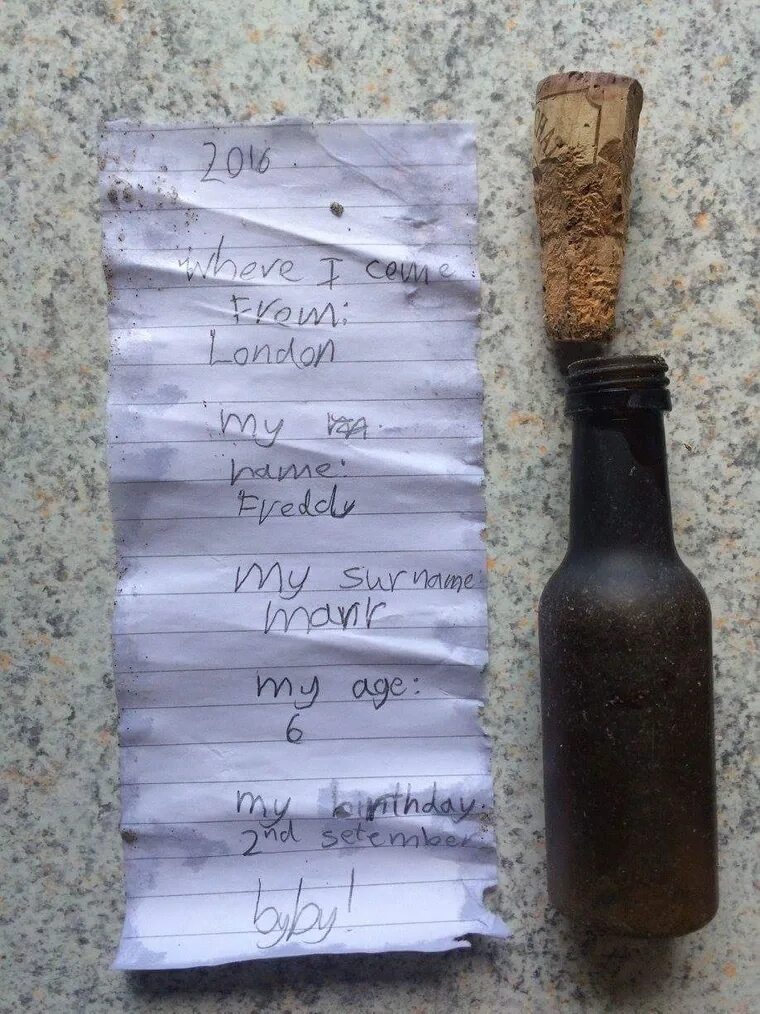 2016
where I come
From:
London
my
name:
Freddy
My surname
my age:
6
my birthday:
2nd setember
byby!